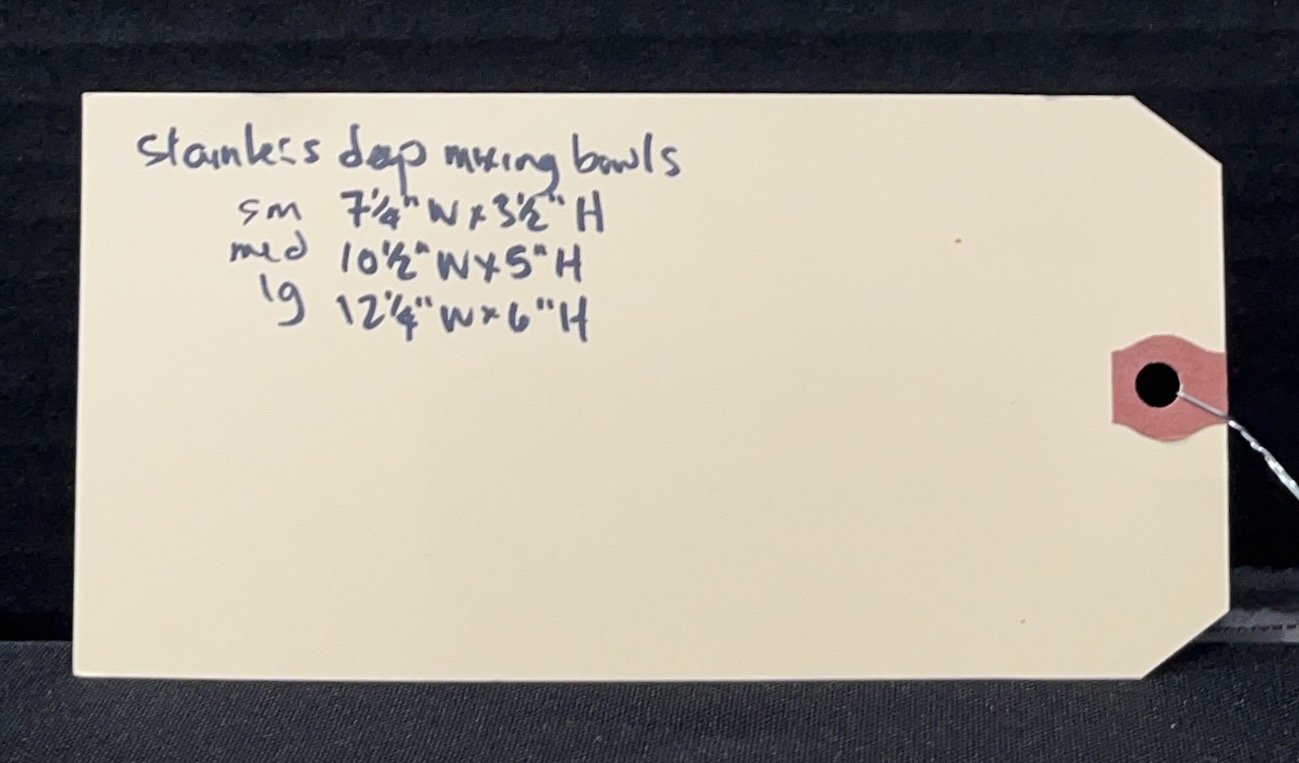 Stainless deep mixing bowls
sm 7¼" W x 3½" H
med 10½" W x 5" H
lg 12¼" W x 6" H